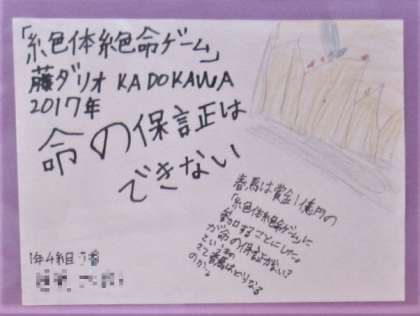 「絶体絶命ゲーム」
藤ダリオ KADOKAWA
2017年
命の保証は
できない
春馬は賞金1億円の
「絶体絶命ゲーム」に
参加することにした。
が命の保証がない?
という
さて春馬はどうなる
のか。
1年4組